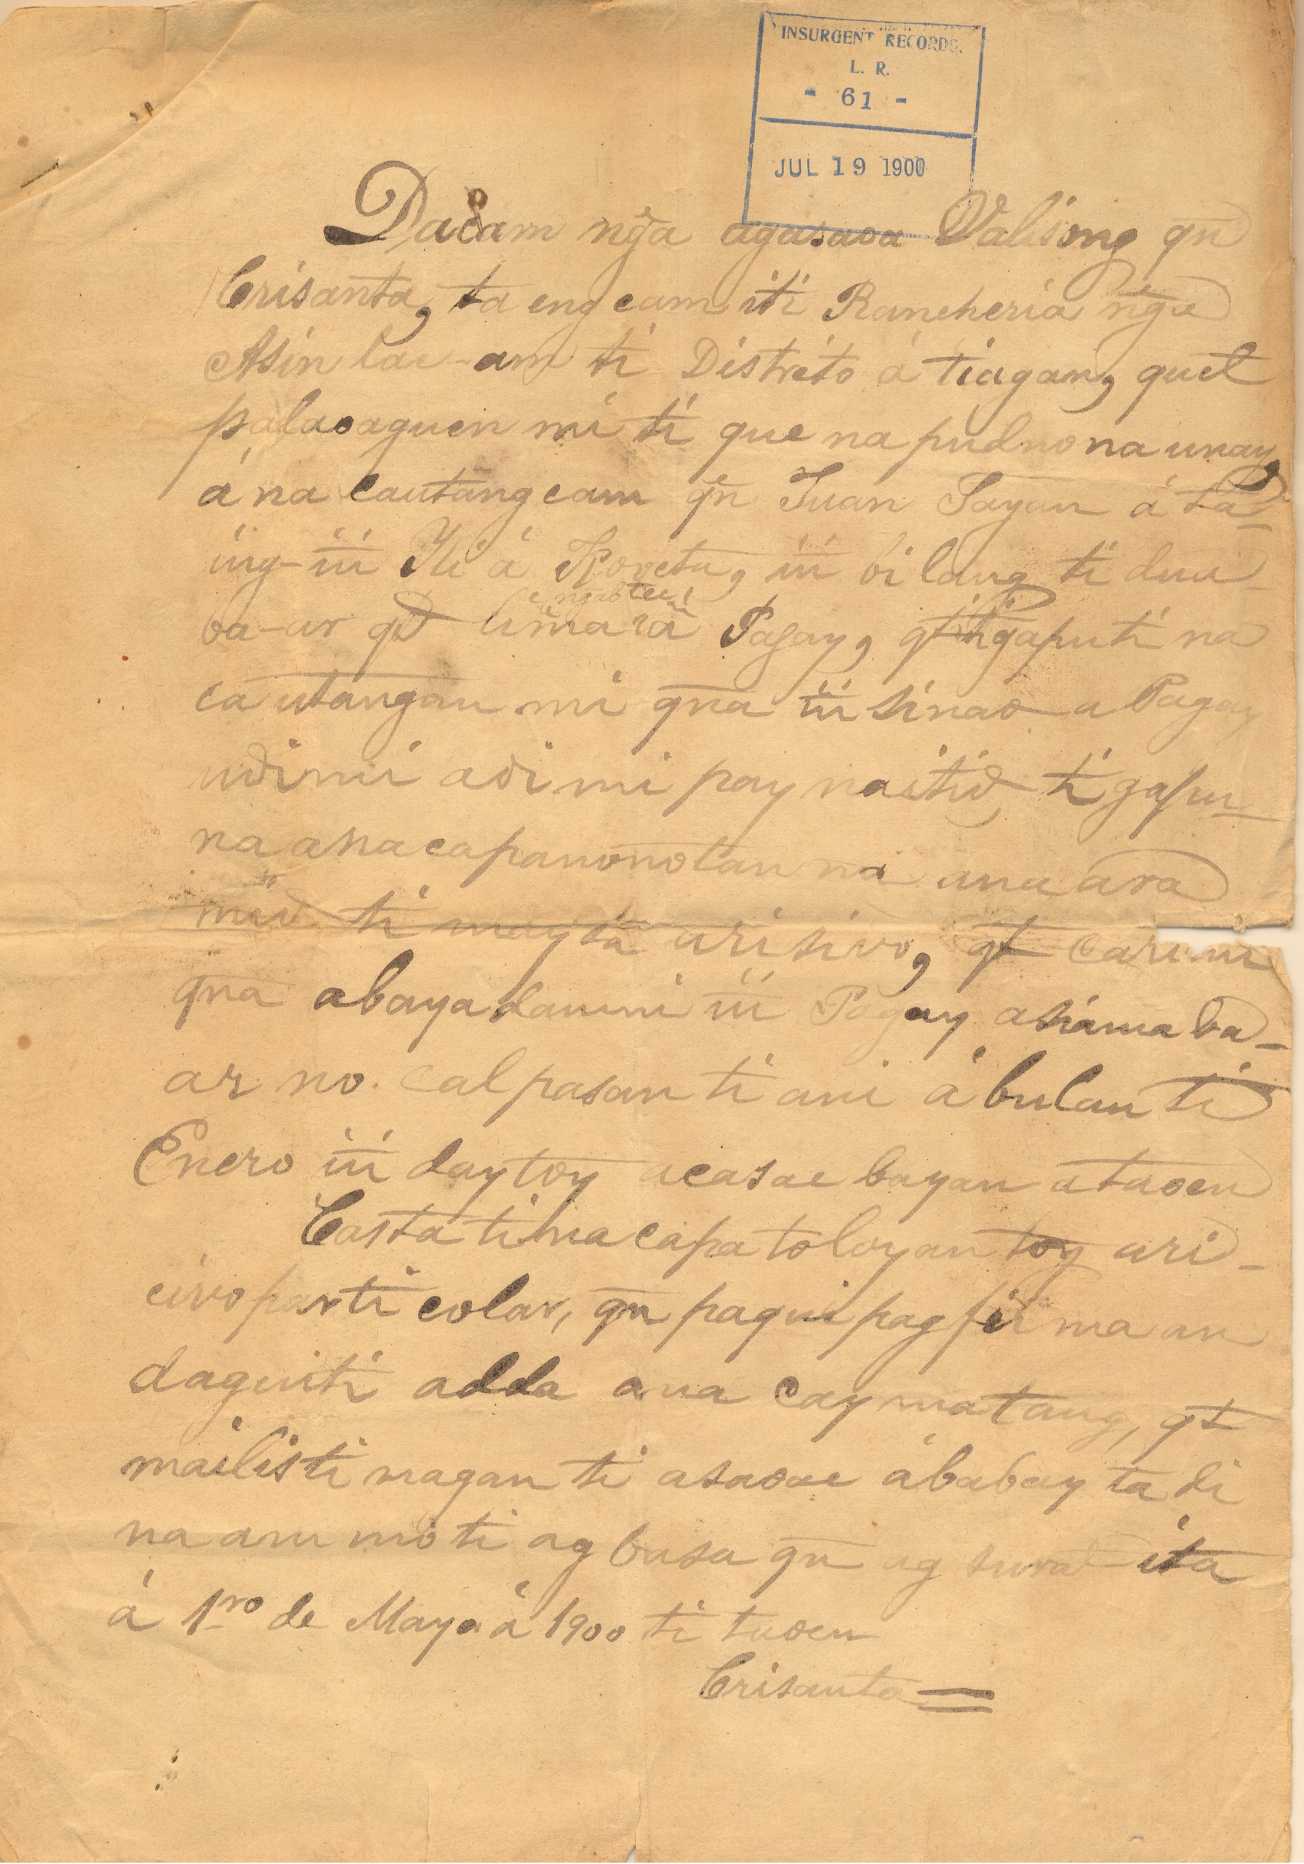 INSURGENT RECORDS.
L. R.
- 61 -
JUL 19 1900
Dacam nga agasaoa Valisong qn
Crisanta, ta eng cam iti Rancheria nga
Asin lac-am ti Distrito á tiagan, quet
palaoaguen mi ti que na pudno na unay,
á na cautang cam qn Juan Sayan á ta-
ing-iti Ili á, iti bilang ti dua
ba-ar qt Pagay, qt gaputi na
ca utangan mi qna iti sinao a Pagay
udi mi adi mi pay naitid, ti gapu-
na ana capanonotan na ana ara
mid ti mayta arisivo, qt
qna abayadanmi iti Pagay asiama ba-
ar no. calpasan ti ani á bulan ti
Enero iti daytoy acasac bayan a taoen
Casta ti na capatoloyan toy ari-
civo particolar, qn paqui pag firma an
daguiti adda ana caymatang, qt
mailisti nagan ti asaoae á babay ta di
na am mo ti ag basa qn ag surat ita
á 1ro de Mayo á 1900 ti taoen
Crisanta